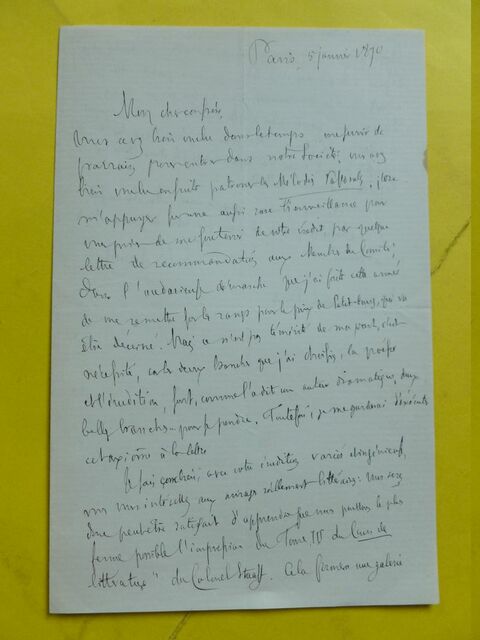 Paris, 5 janvier 1870
Mon cher confrère,
Vous avez bien voulu dans le temps me servir de
parrain pour entrer dans notre Société; vous avez
bien voulu ensuite patronner les Mélodies Pastorales. j'ose
m'appuyer sur une aussi rare bienveillance pour
vous prier de me soutenir de votre crédit par quelque
lettre de recommandation aux Membres du Comité
Dans l'audacieuse démarche que j'ai faite cette année
de me remettre sur les rangs pour le prix de Petit-Bourg, qui va
être décerné. Mais ce n'est pas témérité de ma part, c'est
nécessité, car les deux branches que j'ai choisies, la poésie
et l'érudition, sont, comme l'a dit un auteur dramatique, deux
belles branches pour se pendre. Toutefois, je me garderai d'exécuter
cet axiôme à la lettre
Je sais combien, avec votre érudition variée et ingénieuse,
vous vous intéressez aux ouvrages réellement littéraires. Vous serez
donc peut-être satisfait d'apprendre que nous poussons le plus
ferme possible l'impression du Tome III du Cours de
littérature" du Colonel Staaff. Cela formera une galerie